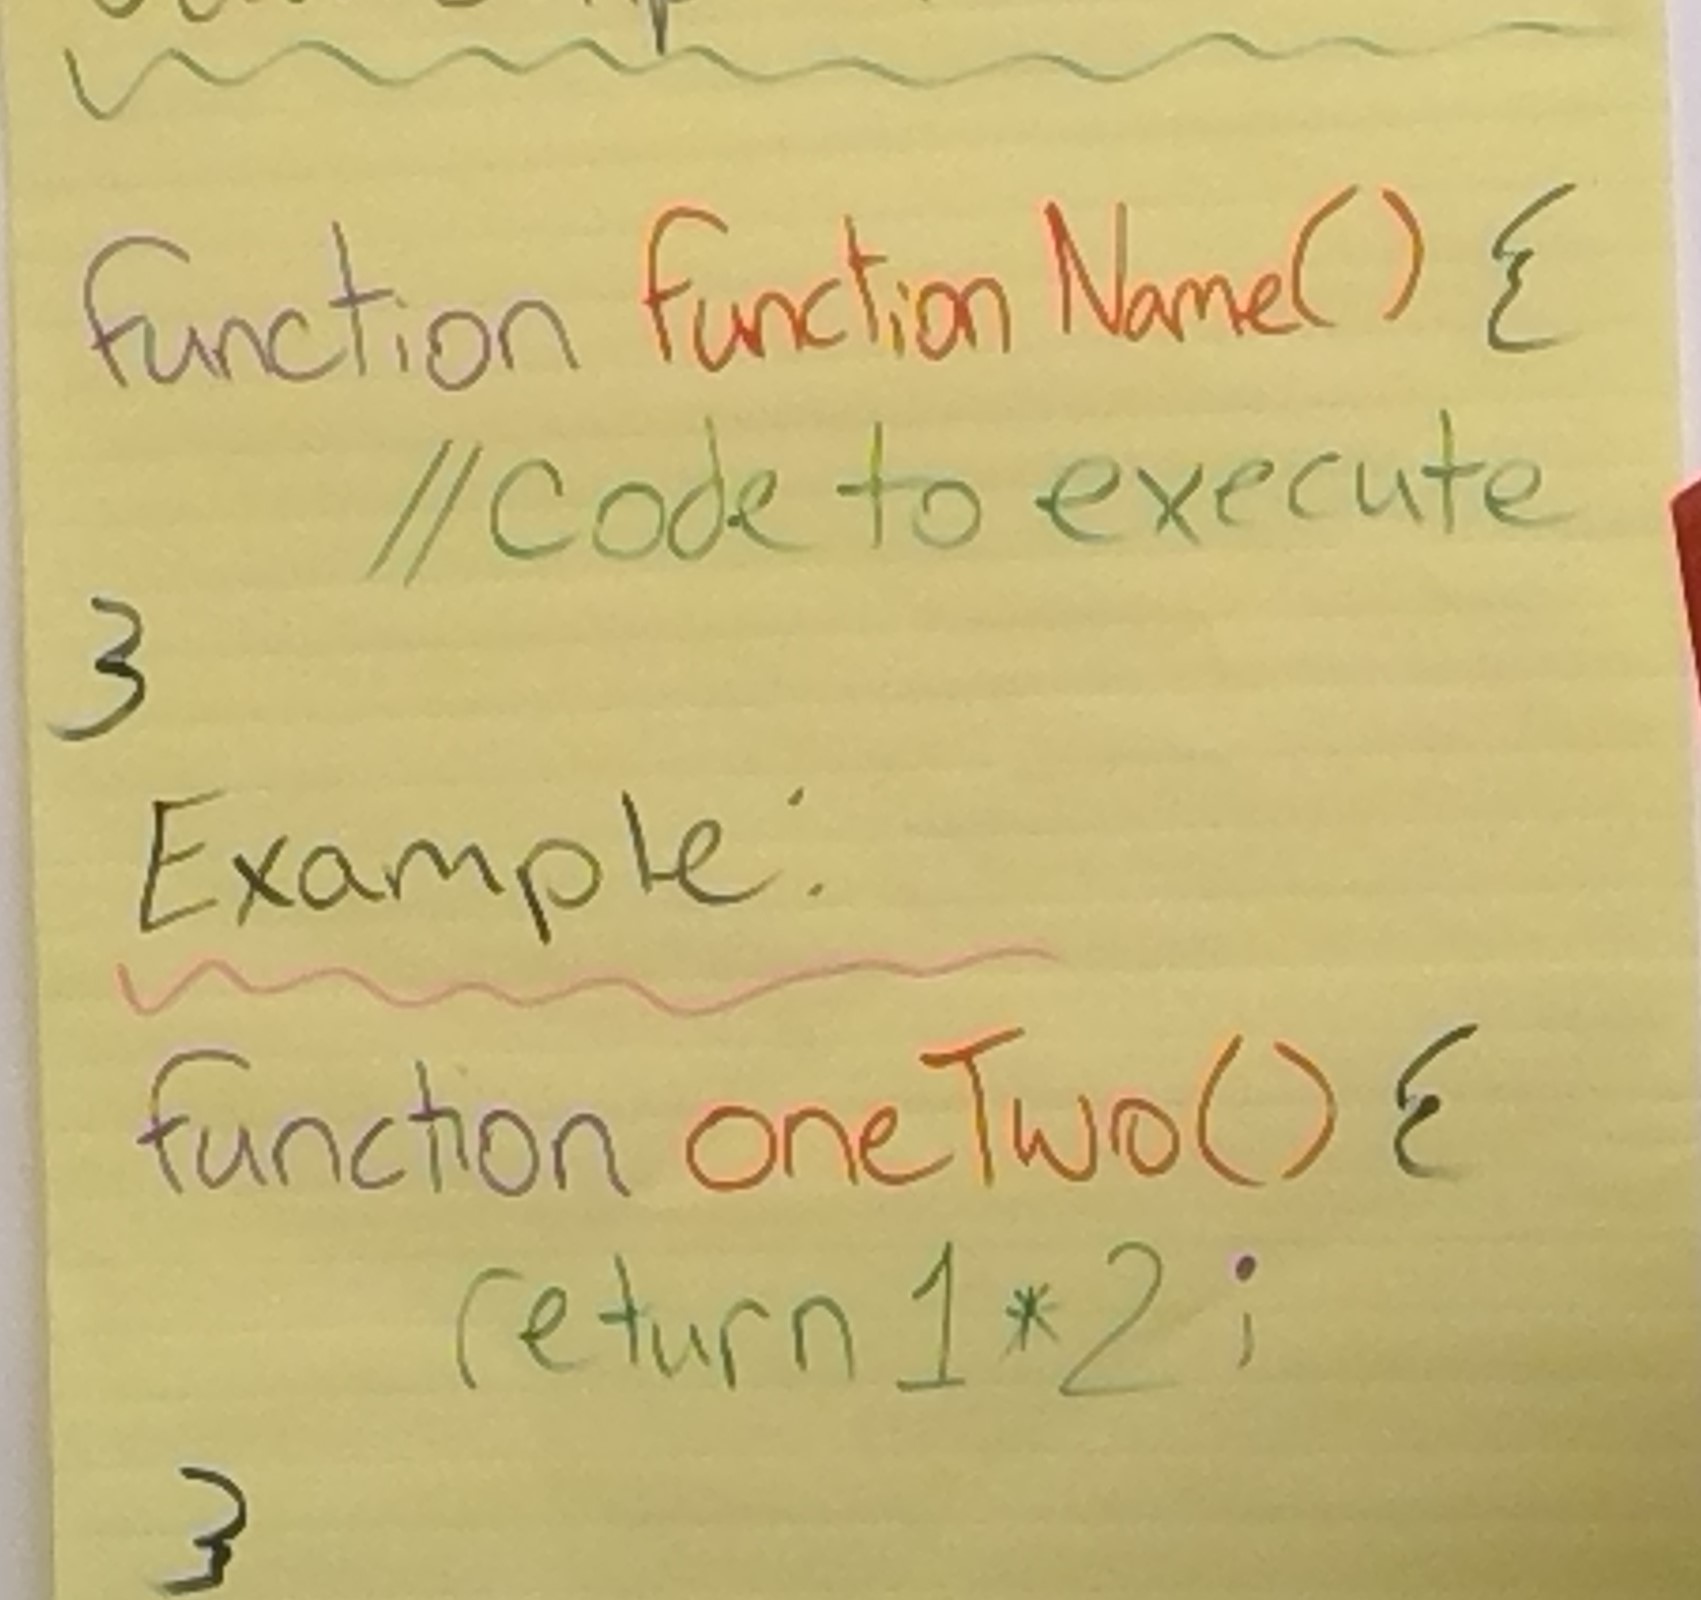 function functionName() {
//Code to execute
}
Example:
function oneTwo() {
return 1*2;
}